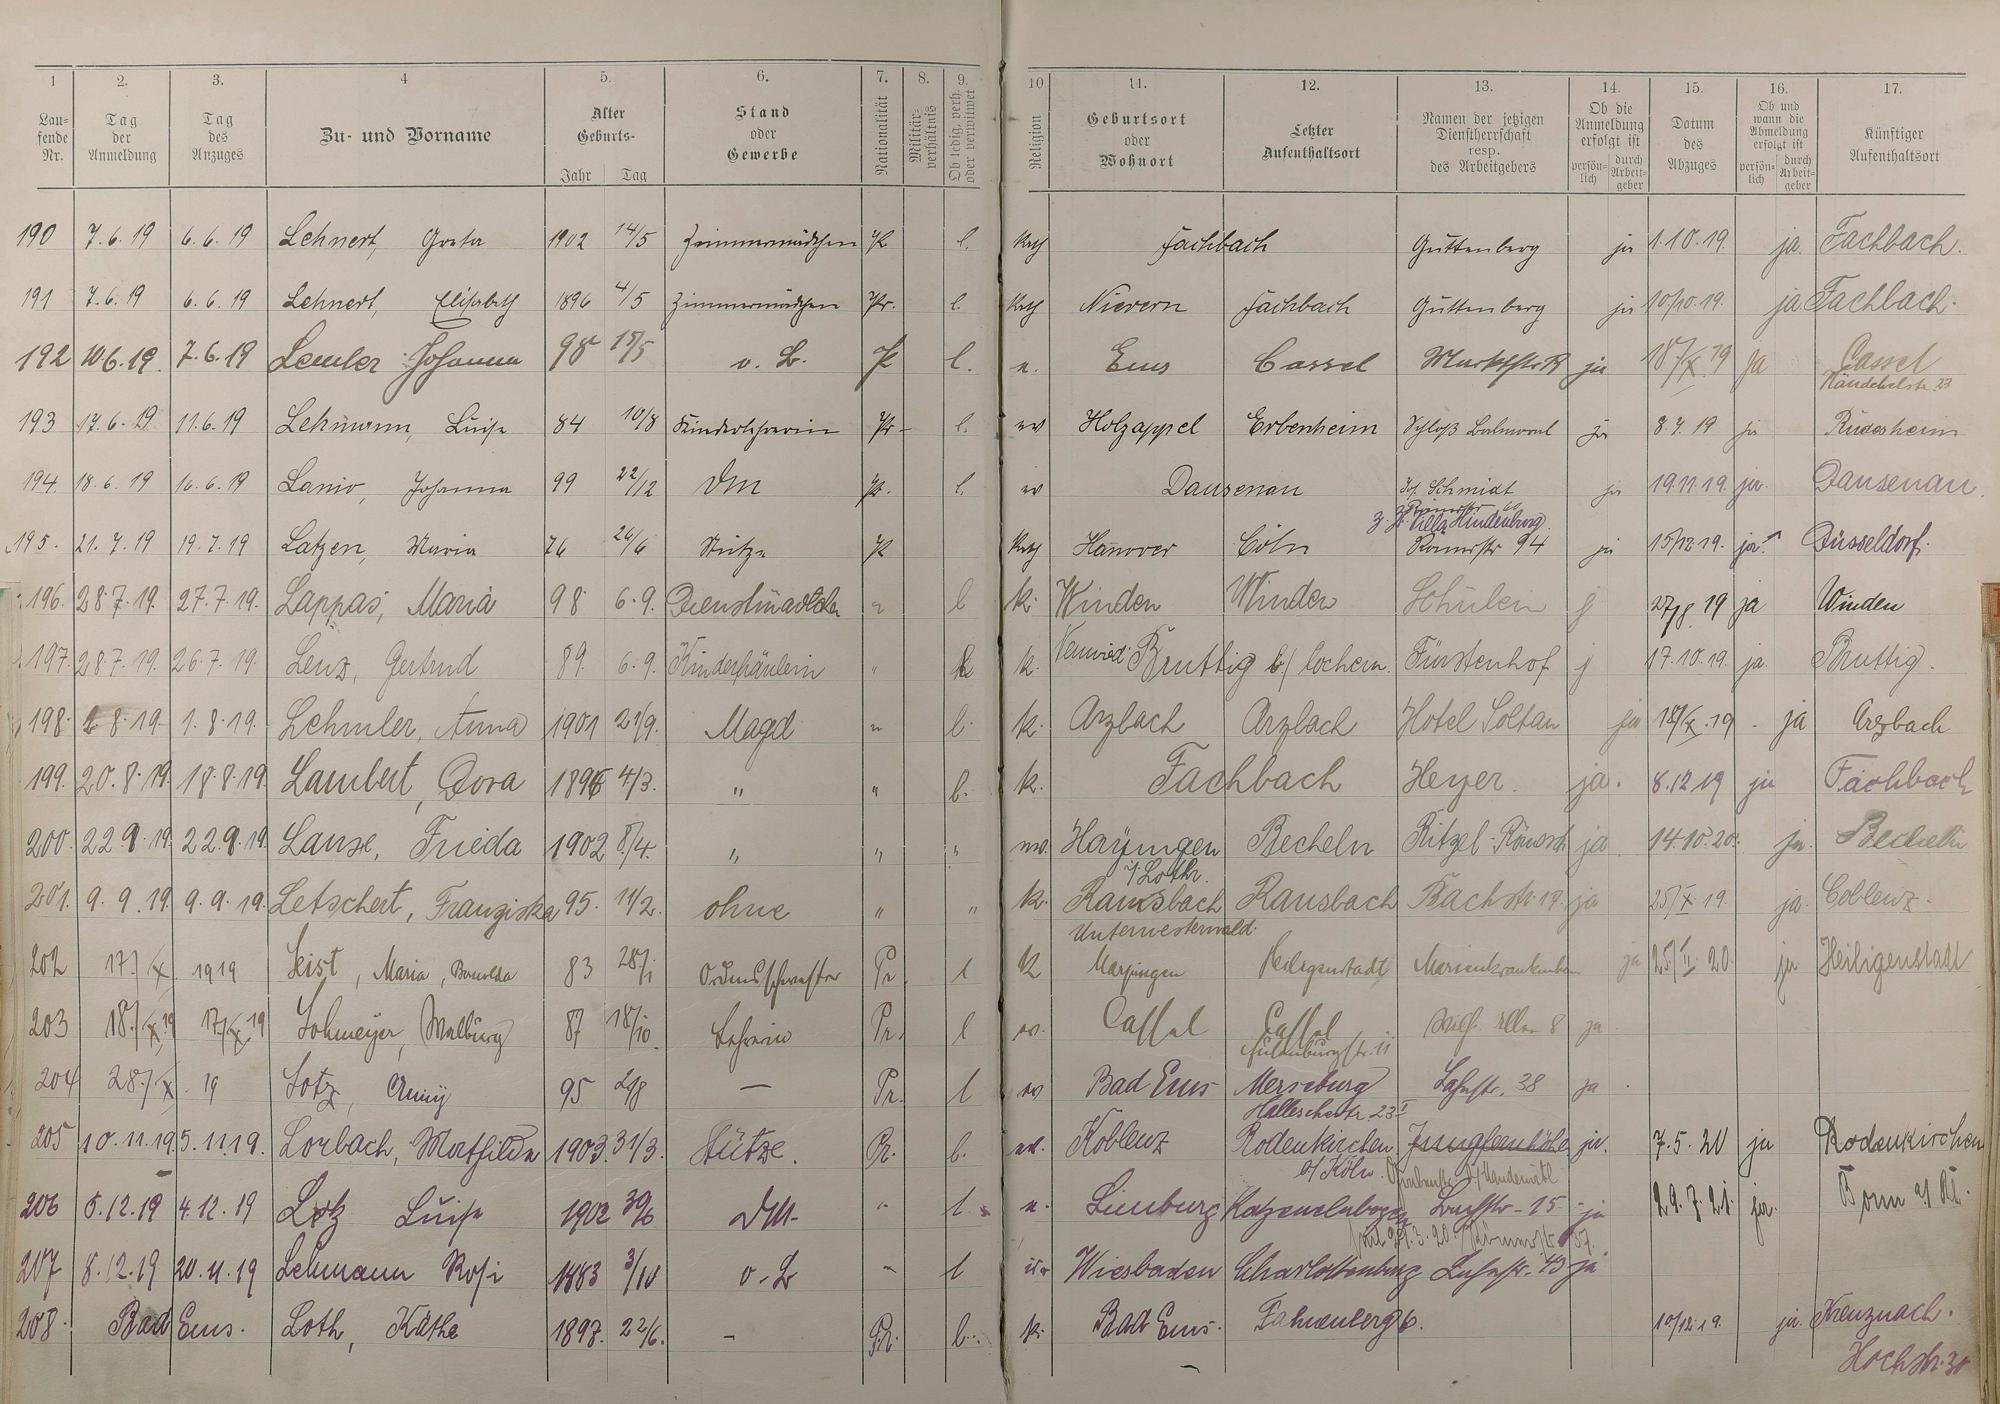 1 2. 3. 4 5. 6. 7. 8. 9. 10 11. 12. 13. 14. 15. 16. 17.
Laufende Nr. Tag der Anmeldung Tag des Anzuges Zu- und Vorname Alter Geburts- Jahr Tag Stand oder Gewerbe Nationalität Militärverhältnis Ob ledig, verh. oder verwitwet Religion Geburtsort oder Wohnort Letzter Aufenthaltsort Namen der jetzigen Dienstherrschaft resp. des Arbeitgebers Ob die Anmeldung erfolgt ist persönlich durch Arbeitgeber Datum des Abzuges Ob und wann die Abmeldung erfolgt ist persönlich durch Arbeitgeber Künftiger Aufenthaltsort
190 7.6.19 6.6.19 Lehnert, Greta 1902 14/5 Zimmermädchen Pr l. Kath Fachbach Guttenberg ja 1.10.19. ja. Fachbach.
191 7.6.19 6.6.19 Lehnert, Elisabeth 1896 4/5 Zimmermädchen Pr. l. Kath Nievern Fachbach Guttenberg ja 10/10.19. ja Fachbach.
192 10.6.19. 7.6.19 Lemler Johanna 98 15/5 o. B. Pr l. e. Ems Cassel ja 18/X 19 ja Cassel
193 17.6.19 11.6.19 Lehmann, Luise 84 10/8 Pr l. ev Holzappel Erbenheim Schloß Balmoral ja 8.7.19 ja Rüdesheim
194. 18.6.19 16.6.19 Lanio, Johanna 99 22/12 DM Pr. l. ev Dausenau Schmidt ja 19.11.19. ja. Dausenau.
z. Zt. Villa Hindenburg
195. 21.7.19 19.7.19 Latzen, Maria 76 26/6 Stütze Pr Kath Hanover Cöln Römerstr 94 ja 15/12 19. ja. Düsseldorf.
196. 28.7.19. 27.7.19. Lappas, Maria 98 6.9. Dienstmädchen " l k. Winden Winden Schülein j 27/8 19 ja Winden
197. 28.7.19. 26.7.19. Lenz, Gertrud 89. 6.9. Kinderfräulein " k. Neuwied Bruttig b/ Cochem. Fürstenhof j 17.10.19. ja. Bruttig.
198. 2.8.19. 1.8.19. Lehmler, Anna 1901 21/9. Magd " l. k. Arzbach Arzbach Hotel Soltau ja 18/X.19 ja Arzbach
199. 20.8.19. 18.8.19 Lambert, Dora 1896 4/3. " " l. k. Fachbach Heyer. ja. 8.12.19 ja Fachbach
200. 22.9.19. 22.9.19. Lause, Frieda 1902 8/4. " " " ev. Hayingen Becheln ja 14.10.20. ja. Becheln
i/ Lothr.
201. 9.9.19. 9.9.19. Letschert, Franziska 95. 11/2. ohne " " k. Ransbach Ransbach Bachstr. 19. ja 25/X.19. ja. Coblenz.
Unterwesterwald.
202 17./X. 1919 Leist, Maria, 83 28/1 Ordensschwester Pr. l K Heiligenstadt Marienkrankenhaus ja 25/II 20. ja Heiligenstadt
203 18./X 19 17/X 19 Lohmeyer, Walburg 87 18/10 Lehrerin Pr. l ev. Cassel Cassel 8 ja
204 28./X. 19 Lotz, Anny 95 2/8 — Pr. l ev Bad Ems Merseburg Lahnstr. 38 ja
Hallesche Str. 23 I
205 10.11.19. 5.11.19. Lorbach, Mathilde 1903. 31/3. Stütze. Pr. l. ev. Koblenz Rodenkirchen Jungfernhöhe ja. 7.5.20 ja Rodenkirchen
a/ Köln.
206 5.12.19 4.12.19 Lotz Luise 1902 30/6 DM. " l. e. Limburg Katzenelnbogen 15 ja 29.7.21. ja. Bonn a/ Rh.
207 8.12.19 20.11.19 Lehmann Rosi 1883 3/10 o. B " l Wiesbaden Charlottenburg Lahnstr. 43 ja
208. Bad Ems. Loth, Käthe 1897. 22/6. — Pr. l. k. Bad Ems. Fahnenberg 6. 10/12.19. ja. Kreuznach.
Hochstr. 30